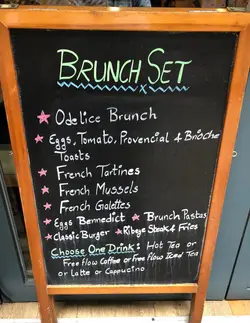 BRUNCH SET
Odelice Brunch
Eggs, Tomato, Provencial & Brioche
Toasts
French Tartines
French Mussels
French Galettes
Eggs Bennedict Brunch Pastas
Classic Burger Ribeye Steak & Fries
Choose One Drink: Hot Tea or
Free Flow Coffee or Free Flow Iced Tea
or Latte or Cappucino